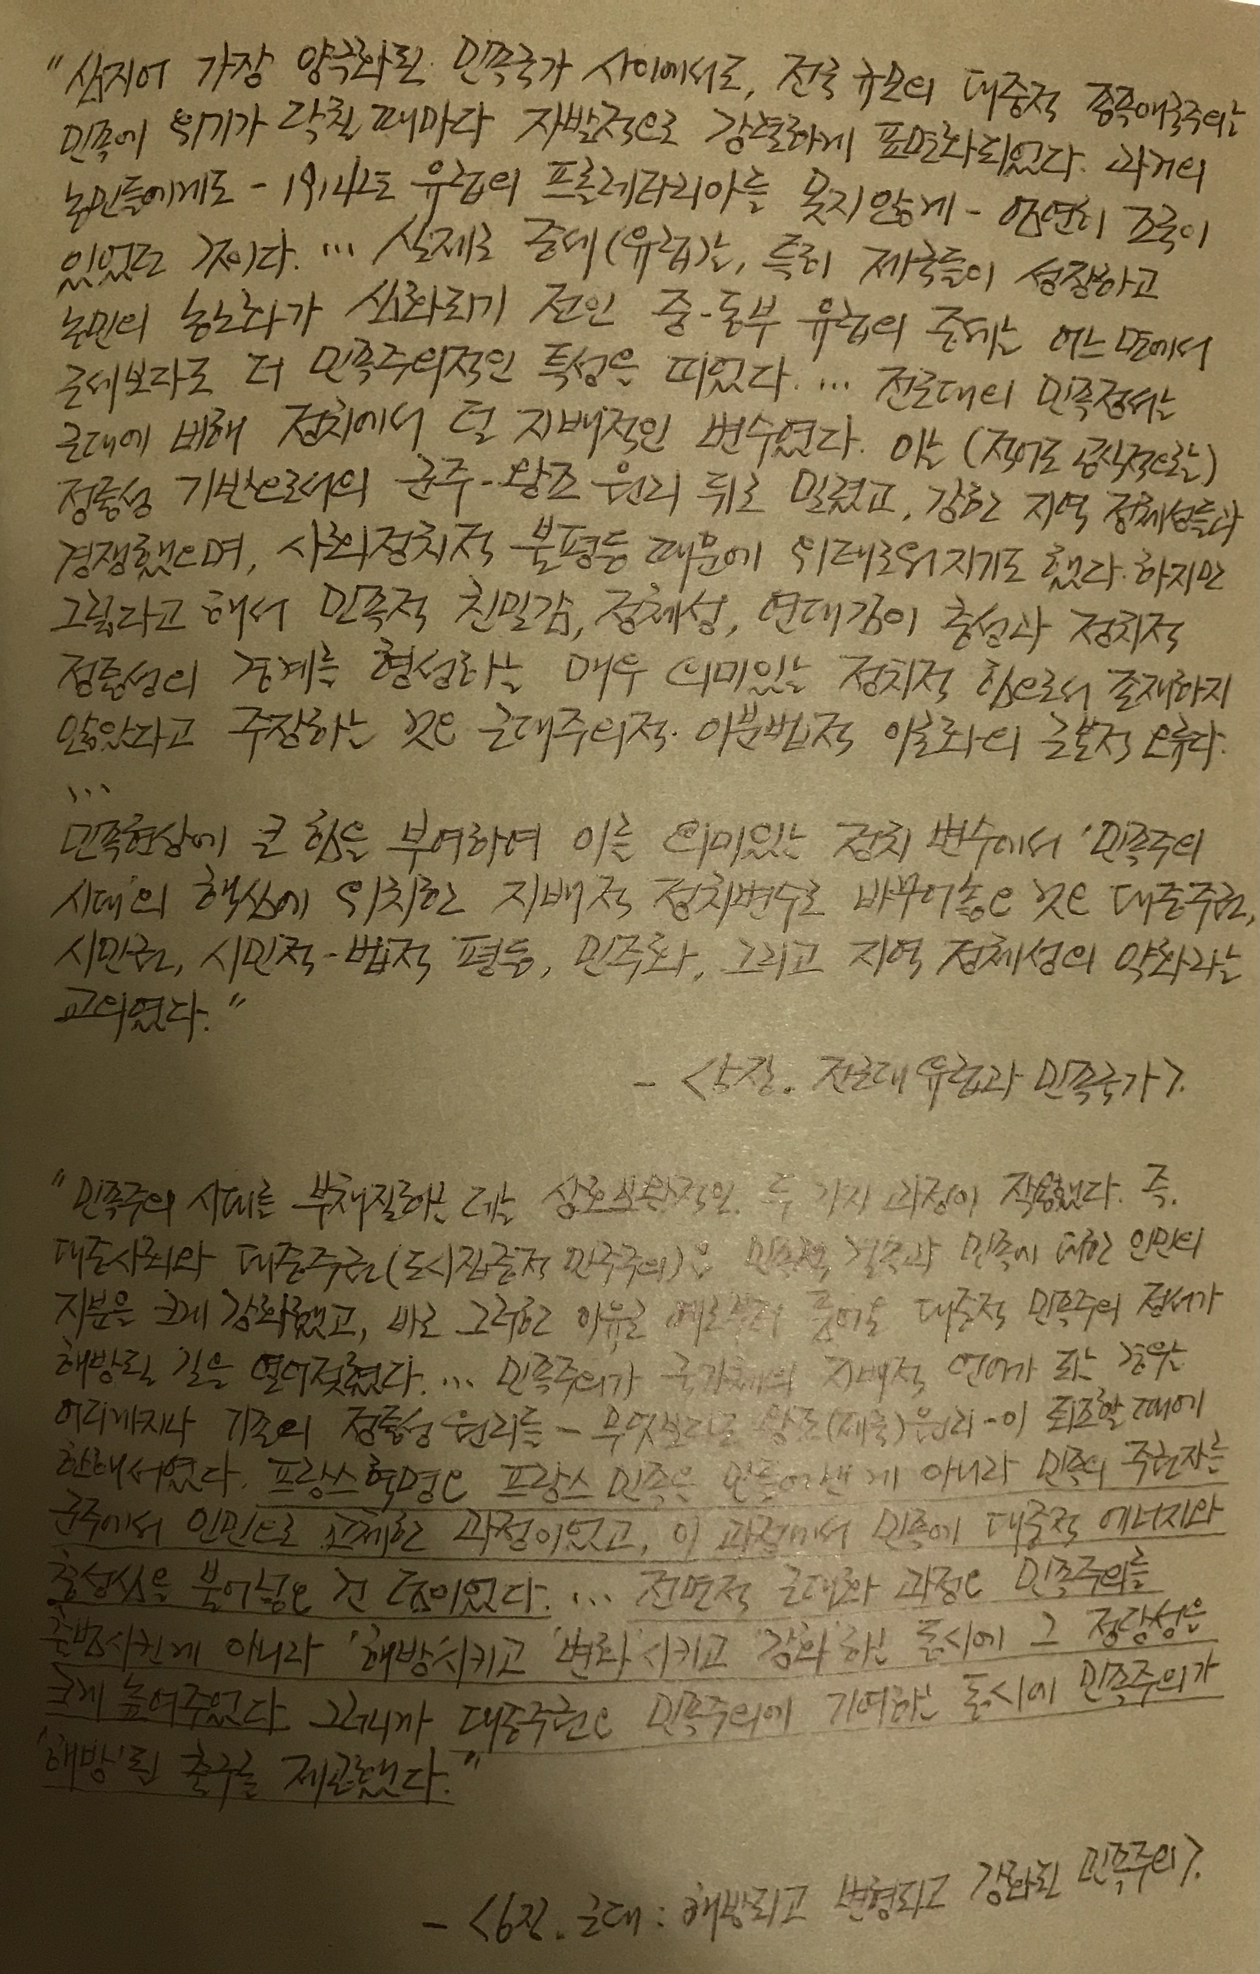 "심지어 가장 양극화된 민족국가 사이에서도, 전국 규모의 대중적 종족애국주의는
민족에 위기가 닥칠 때마다 자발적으로 강렬하게 표면화되었다. 과거의
농민들에게도 - 1914년도 유럽의 프롤레타리아들 못지않게 - 엄연히 조국이
있었던 것이다. … 실제로 중세(유럽)는, 특히 제국들이 성장하고
농민의 농노화가 심화되기 전인 중-동부 유럽의 중세는 어느 면에서
근세보다도 더 민족주의적인 특성을 띠었다. … 전근대의 민족정서는
근대에 비해 정치에서 덜 지배적인 변수였다. 이는 (적어도 공식적으로는)
정통성 기반으로서의 군주-왕조 원리 뒤로 밀렸고, 강한 지역 정체성들과
경쟁했으며, 사회정치적 불평등 때문에 위태로워지기도 했다. 하지만
그렇다고 해서 민족적 친밀감, 정체성, 연대감이 충성과 정치적
정통성의 경계를 형성하는 매우 의미있는 정치적 힘으로서 존재하지
않았다고 주장하는 것은 근대주의적·이분법적 이론화의 근본적 오류다.
…
민족현상에 큰 힘을 부여하여 이를 의미있는 정치 변수에서 '민족주의
시대'의 핵심에 위치한 지배적 정치변수로 바꾸어놓은 것은 대중주권,
시민권, 시민적-법적 평등, 민주화, 그리고 지역 정체성의 약화라는
교의였다."
- <5장. 전근대 유럽과 민족국가>.
"민족주의 시대를 부채질하는 데는 상호보완적인 두 가지 과정이 작용했다. 즉.
대중사회와 대중주권(도시집중적 민주주의)은 민족적 결속과 민족에 대한 인민의
지분을 크게 강화했고, 바로 그러한 이유로 예로부터 품어온 대중적 민족주의 정서가
해방될 길을 열어젖혔다. … 민족주의가 국가체의 지배적 언어가 되는 경우는
어디까지나 기존의 정통성 원리들 - 무엇보다도 왕조(제국)원리 - 이 퇴조할 때에
한해서였다. 프랑스혁명은 프랑스 민족을 만들어낸 게 아니라 민족의 주권자를
군주에서 인민으로 교체한 과정이었고, 이 과정에서 민족에 대중적 에너지와
충성심을 불어넣은 건 덤이었다. … 전면적 근대화 과정은 민족주의를
출범시킨게 아니라 '해방'시키고 '변화'시키고 '강화'하는 동시에 그 정당성을
크게 높여주었다. 그러니까 대중주권은 민족주의에 기여하는 동시에 민족주의가
'해방'될 출구를 제공했다."
- <6장. 근대 : 해방되고 변형되고 강화된 민족주의>.